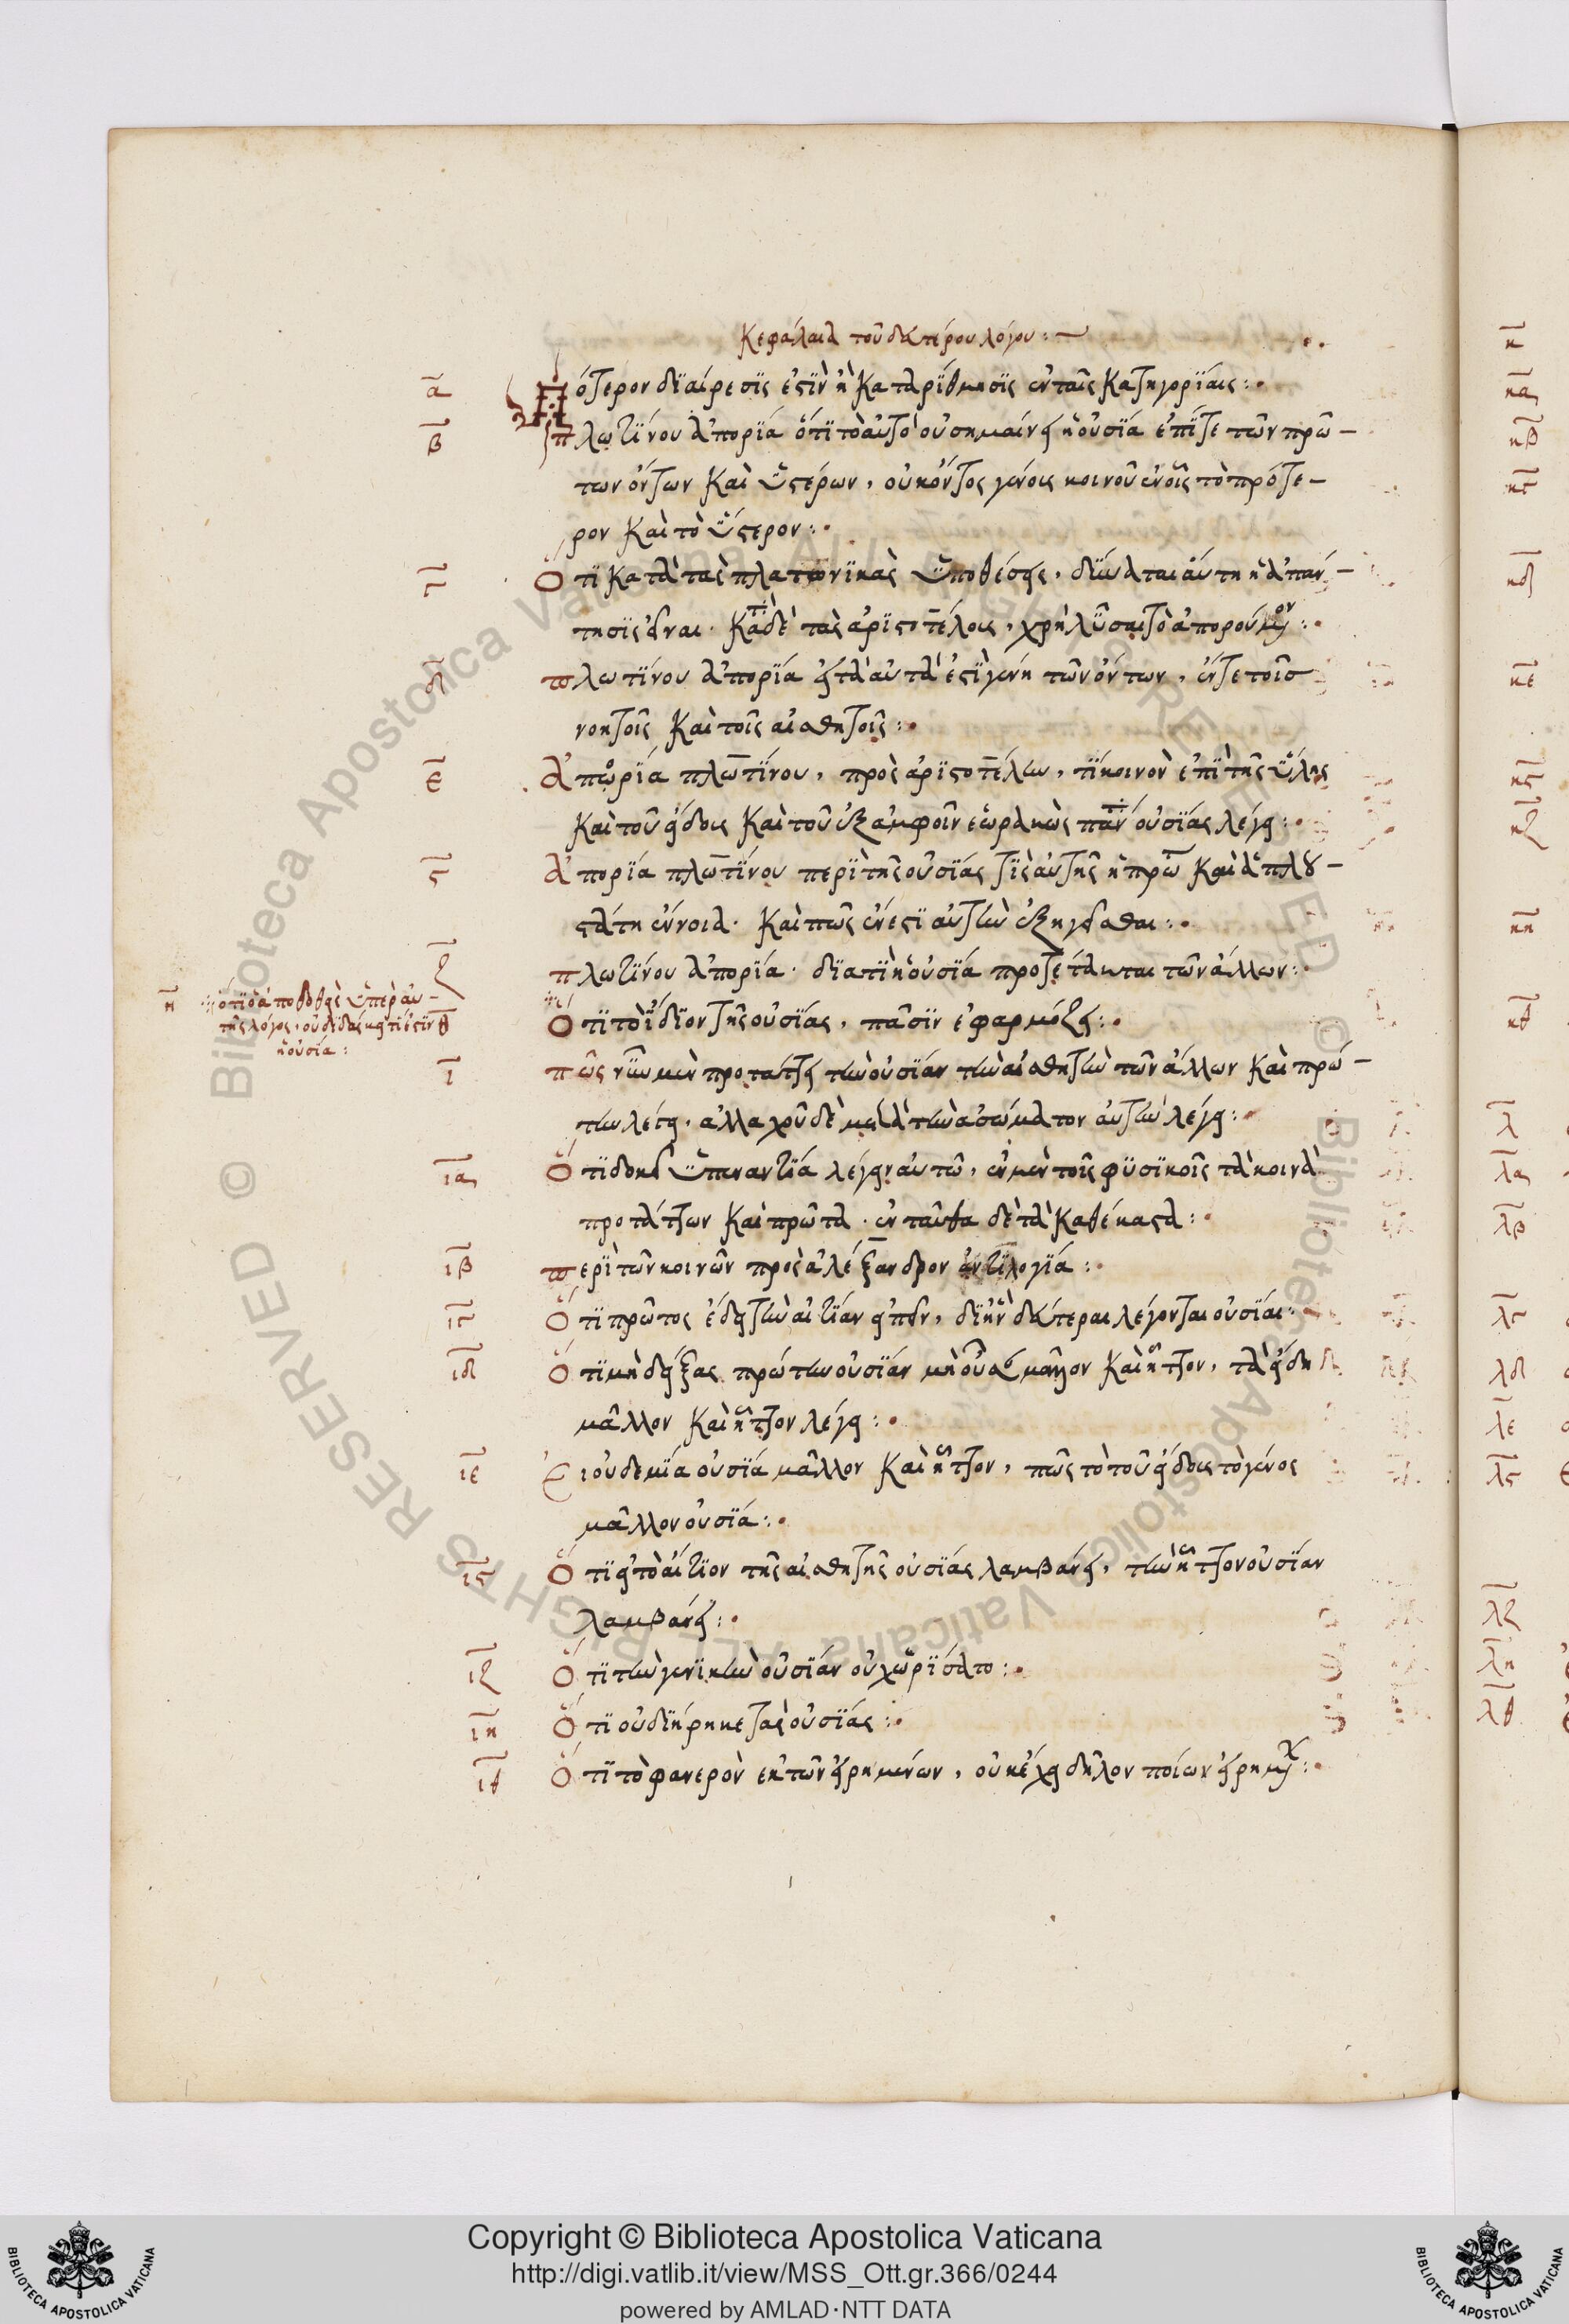 Κεφάλαια τοῦ δευτέρου λόγου:
α Πότερον διαίρεσις ἐστὶν ἢ καταρίθμησις ἐν ταῖς κατηγορίαις:
β πλωτίνου ἀπορία ὅτι τὸ αὐτὸ οὐ σημαίνει ἡ οὐσία ἐπί τε τῶν πρώ-
των ὄντων καὶ ὑστέρων, οὐκ ὄντος γένους κοινοῦ ἐν οἷς τὸ πρότε-
ρον καὶ τὸ ὕστερον:
γ Ὅτι κατὰ τὰς πλατωνικὰς ὑποθέσεις, δύναται αὕτη ἡ ἀπάν-
τησις εἶναι. κατὰ δὲ τὰς ἀριστοτέλους, χρὴ λῦσαι τὸ ἀπορούμενον:
δ πλωτίνου ἀπορία εἰ τὰ αὐτά ἐστι γένη τῶν ὄντων, ἔν τε τοῖσ
νοητοῖς καὶ τοῖς αἰσθητοῖς:
ε ἀπορία πλωτίνου, πρὸς ἀριστοτέλην, τί κοινὸν ἐπὶ τῆς ὕλης
καὶ τοῦ εἴδους καὶ τοῦ ἐξ ἀμφοῖν ἑωρακὼς οὐσίας λέγει:
ς ἀπορία πλωτίνου περὶ τῆς οὐσίας τίς αὐτῆς ἡ πρώτη καὶ ἁπλου-
στάτη ἔννοια. καὶ πῶς ἔνεστι αὐτὴν ἐξηγεῖσθαι:
ζ πλωτίνου ἀπορία. διατί ἡ οὐσία προτέτακται τῶν ἄλλων:
η ὅτι ὁ ἀποδοθεὶς ὑπὲρ αὐ-
τῆς λόγος, οὐ διδάσκει τί ἐστιν
ἡ οὐσία:
θ Ὅτι τὸ ἴδιον τῆς οὐσίας, πᾶσιν ἐφαρμόζει:
ι πῶς νῦν μὲν προτάττει τὴν οὐσίαν τὴν αἰσθητὴν τῶν ἄλλων καὶ πρώ-
την λέγει, ἀλλαχοῦ δὲ μετὰ τὴν ἀσώματον αὐτὴν λέγει:
ια Ὅτι δοκεῖ ὑπεναντία λέγειν αὐτῷ, ἐν μὲν τοῖς φυσικοῖς τὰ κοινὰ
προτάττων καὶ πρῶτα. ἐνταῦθα δὲ τὰ καθέκαστα:
ιβ περὶ τῶν κοινῶν πρὸς ἀλέξανδρον ἀντιλογία:
ιγ Ὅτι πρῶτος ἔδει τὴν αἰτίαν εἰπεῖν, δι' ἣν δεύτεραι λέγονται οὐσίαι:
ιδ Ὅτι μὴ δείξας πρώτην οὐσίαν μὴ οὖσαν μᾶλλον καὶ ἧττον, τὰ εἴδη
μᾶλλον καὶ ἧττον λέγει:
ιε Εἰ οὐδεμία οὐσία μᾶλλον καὶ ἧττον, πῶς τὸ τοῦ εἴδους τὸ γένος
μᾶλλον οὐσία:
ις Ὅτι εἰ τὸ αἴτιον τῆς αἰσθητῆς οὐσίας λαμβάνει, τὴν ἧττον οὐσίαν
λαμβάνει:
ιζ Ὅτι τὴν γενικὴν οὐσίαν οὐ χωρίσατο:
ιη Ὅτι οὐ διήρηκε τὰς οὐσίας:
ιθ Ὅτι τὸ φανερὸν ἐκ τῶν εἰρημένων, οὐκ ἔχει δῆλον ποίων εἰρημένων:
κ
κα
κβ
κγ
κδ
κε
κς
κζ
κη
κθ
λ
λα
λβ
λγ
λδ
λε
λς
λζ
λη
λθ
Copyright © Biblioteca Apostolica Vaticana
http://digi.vatlib.it/view/MSS_Ott.gr.366/0244
powered by AMLAD·NTT DATA
BIBLIOTECA APOSTOLICA VATICANA
BIBLIOTECA APOSTOLICA VATICANA
© Biblioteca Apostolica Vaticana ALL RIGHTS RESERVED © Biblioteca Apostolica Vaticana ALL RIGHTS RESERVED